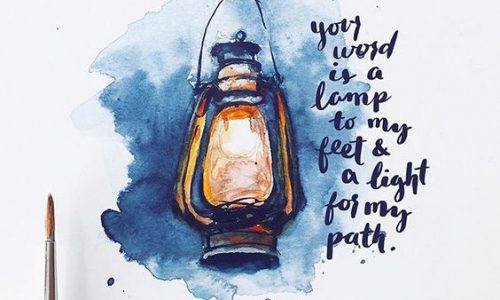 your
word
is a
lamp
to my
feet &
a light
for my
path.